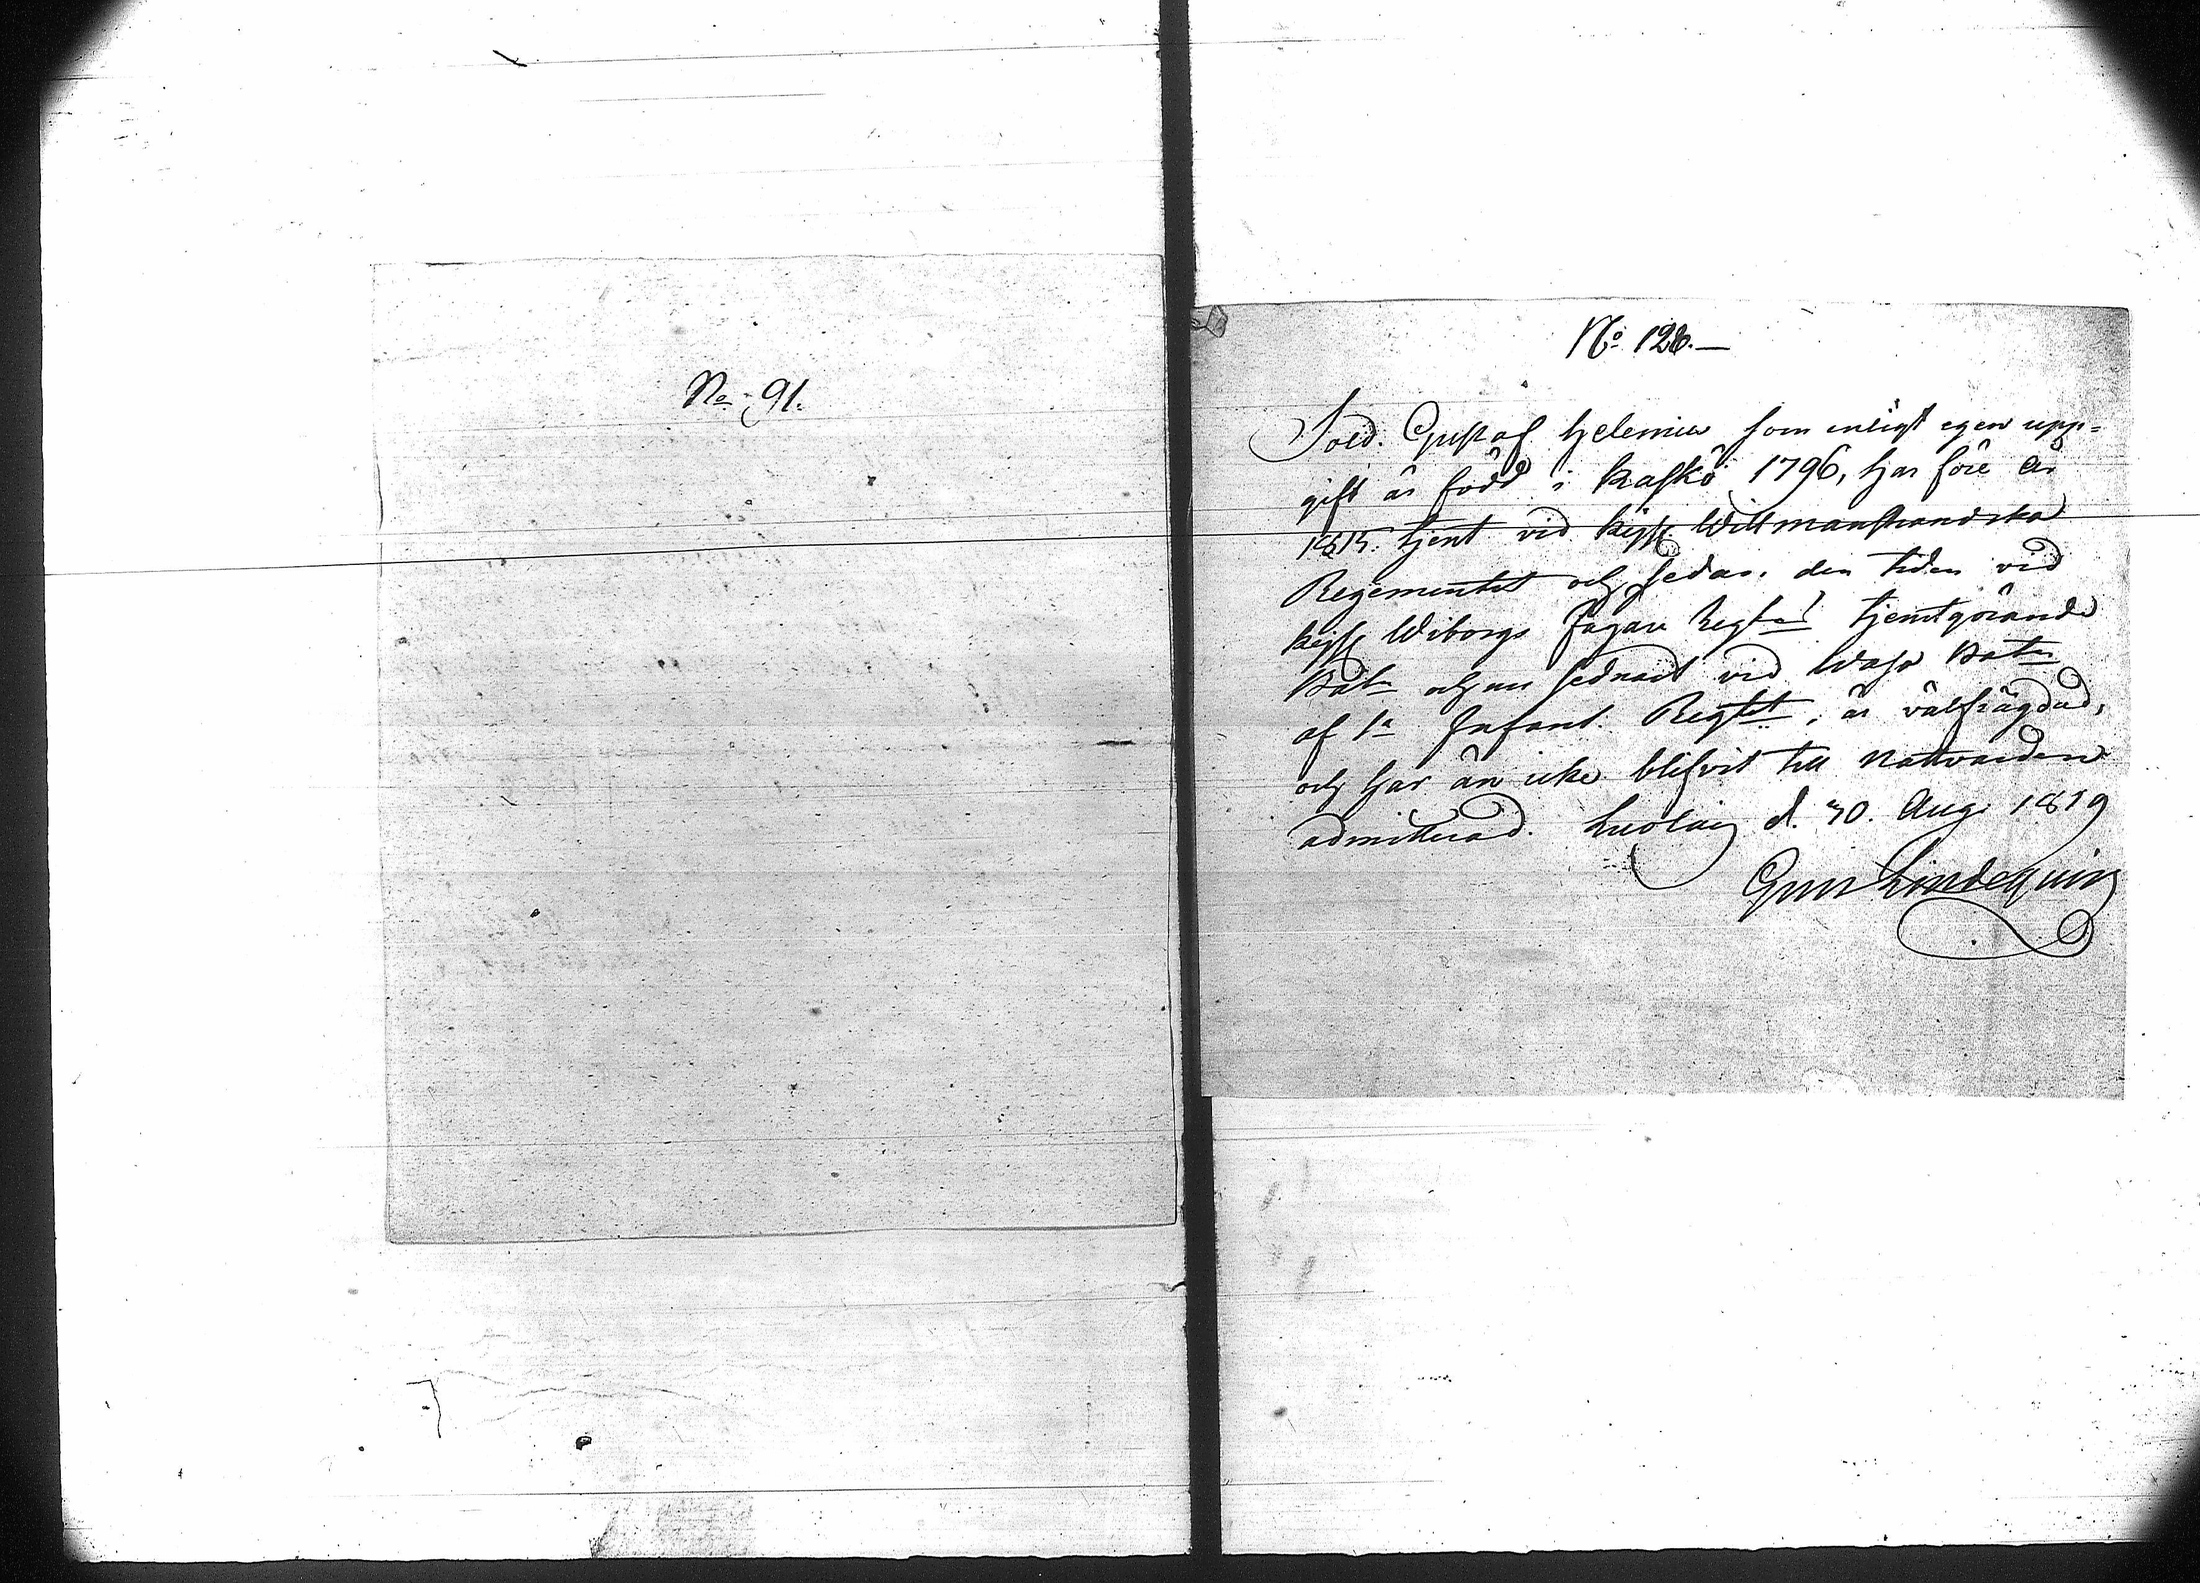 No 91.
No 128.
Sold. Gustaf Helenius som enligt egen upp-
gift är född i Kaskö 1796, har före År
1815. tjent vid Kejs. Willmanstrandska
Regementet och sedan den tiden vid
Kejs. Wiborgs Jägare Regtet tjentgörande
Batn och nu sednast vid Wasa Batn
af 1a Infant. Regtet, är välfrägdad,
och har än icke blifvit till Nattvarden
admitterad. d. 30. Aug. 1819
Lindeqvist